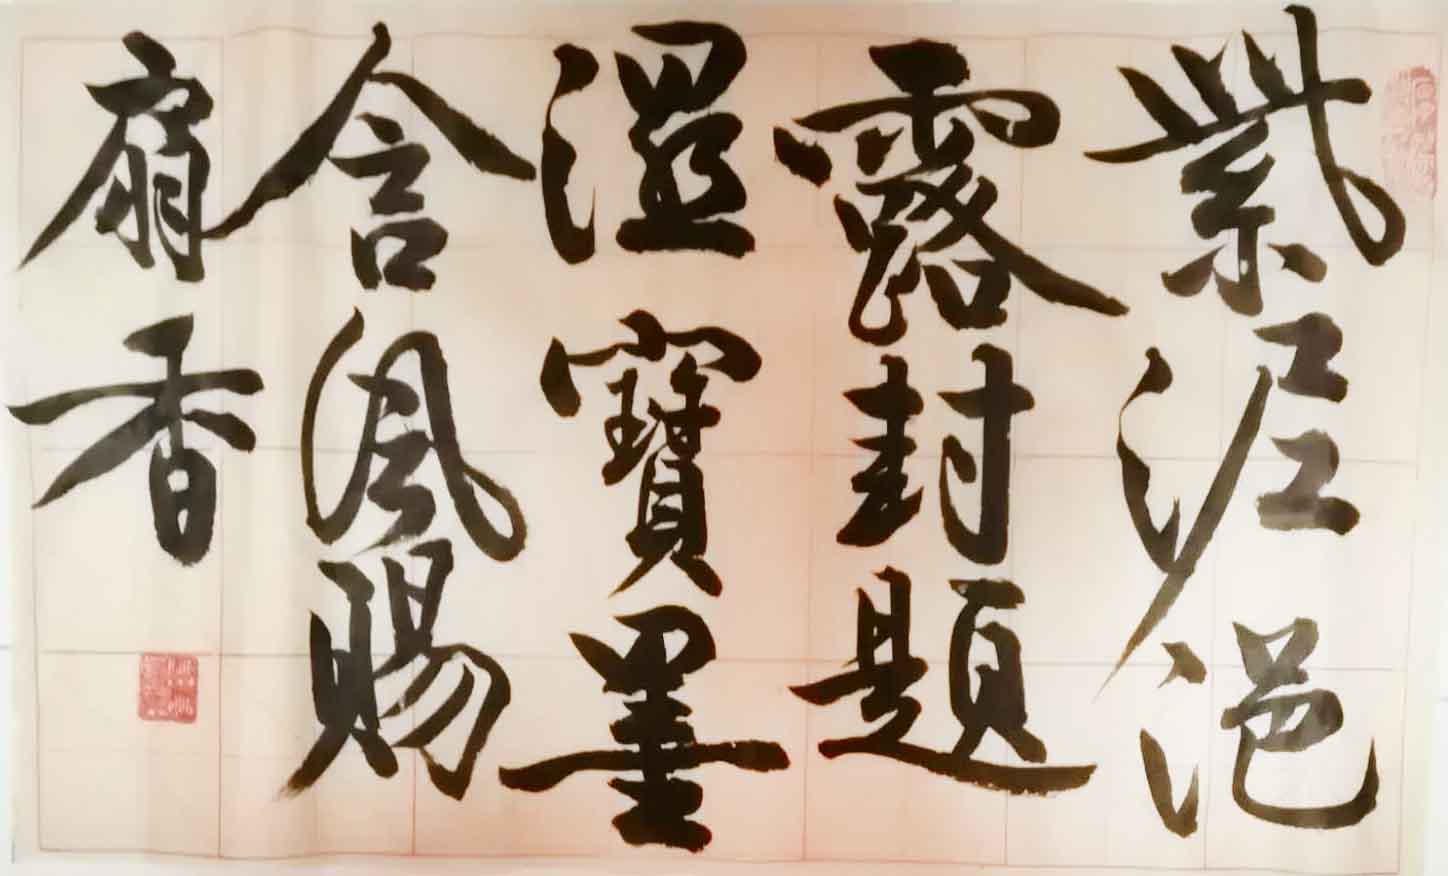 紫泥浥
露封題
湿寶墨
含風賜
扇香